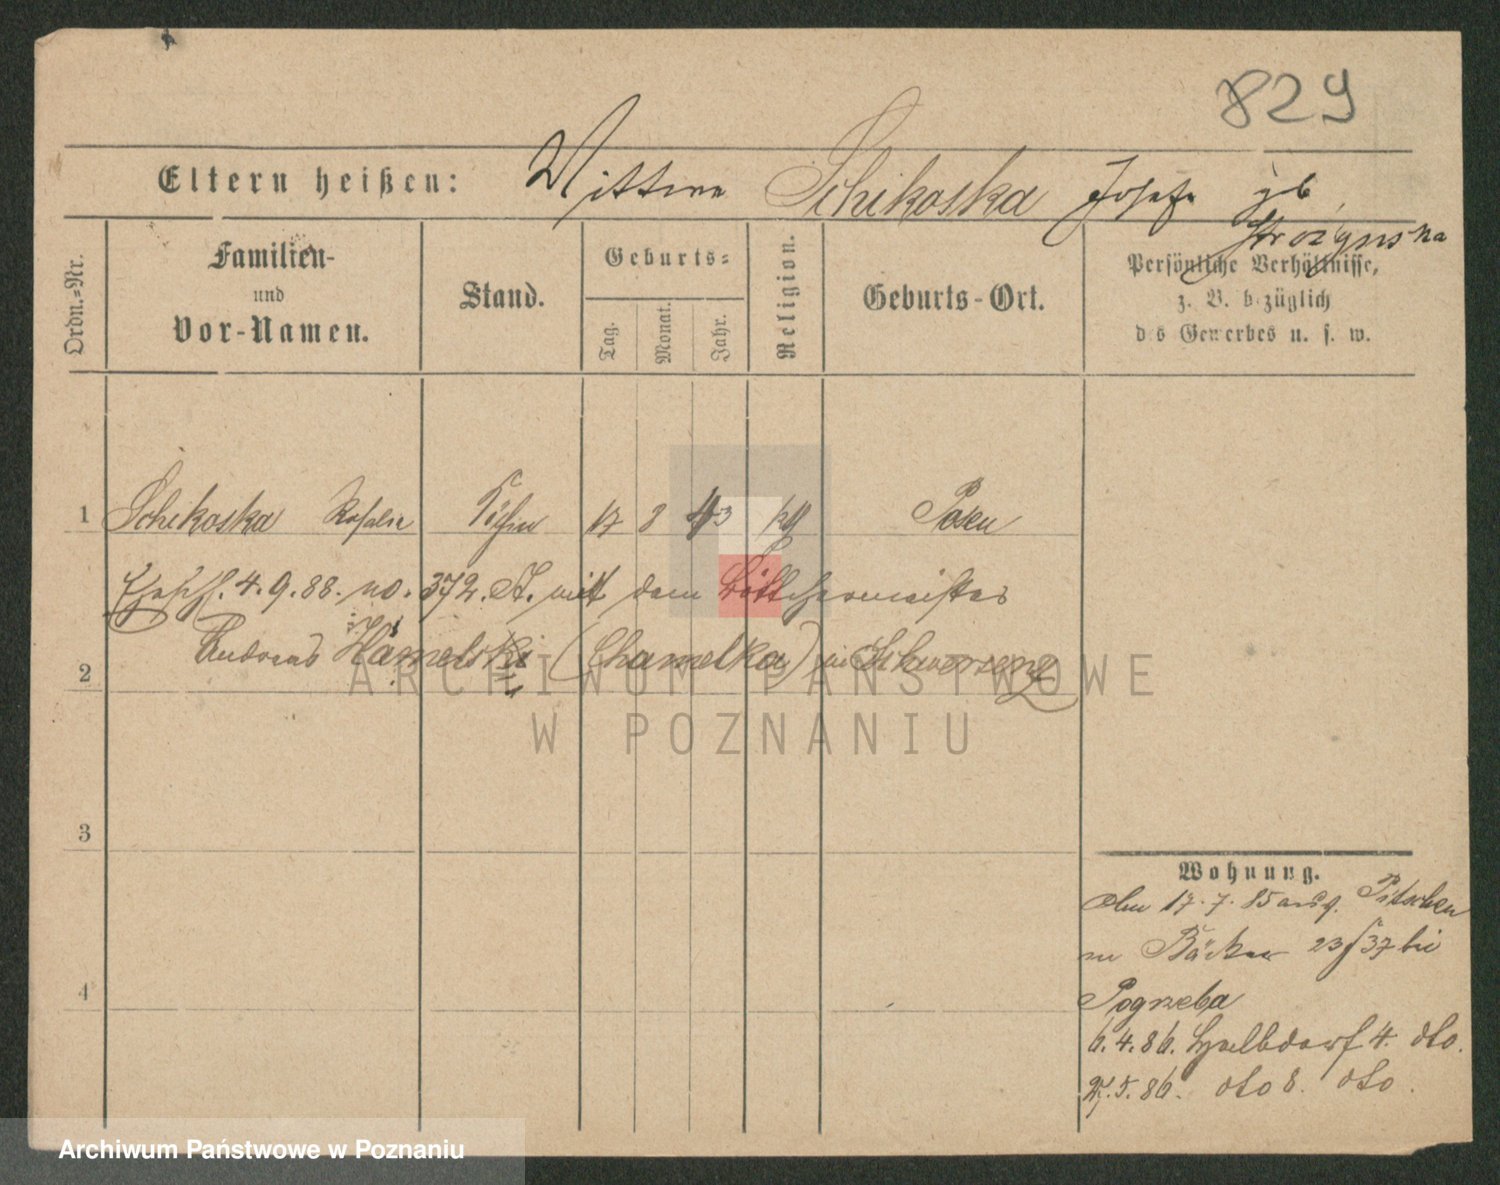 829
Eltern heißen: Wittwe Schikoska Josefa gb.
Stroizynska
Ordn.-Nr.
Familien-
und
Vor-Namen.
Stand.
Geburts-
Tag.
Monat.
Jahr.
Religion.
Geburts-Ort.
Persönliche Verhältnisse,
z. B. bezüglich
des Gewerbes u. s. w.
1 Schikoska Rosalie Köchin 17 8 43 Posen
Ehesch. 4.9.88. no. 372. A. mit dem Böttchermeister
Andreas Hamelski (Chamelka) in Schwersenz
2
3
4
Wohnung.
17.7.85 Pitschen
Bäcker 23/37 bei
Pogrzeba
6.4.86. Halbdorf 4. dto.
27.5.86. dto 8. dto.
ARCHIWUM PAŃSTWOWE
W POZNANIU
Archiwum Państwowe w Poznaniu